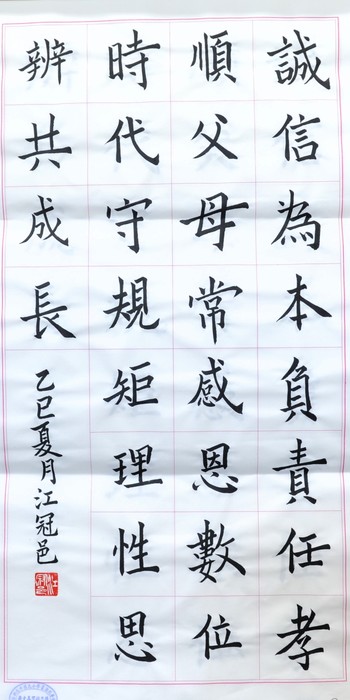 誠信為本負責任孝
順父母常感恩數位
時代守規矩理性思
辨共成長
乙巳夏月江冠邑